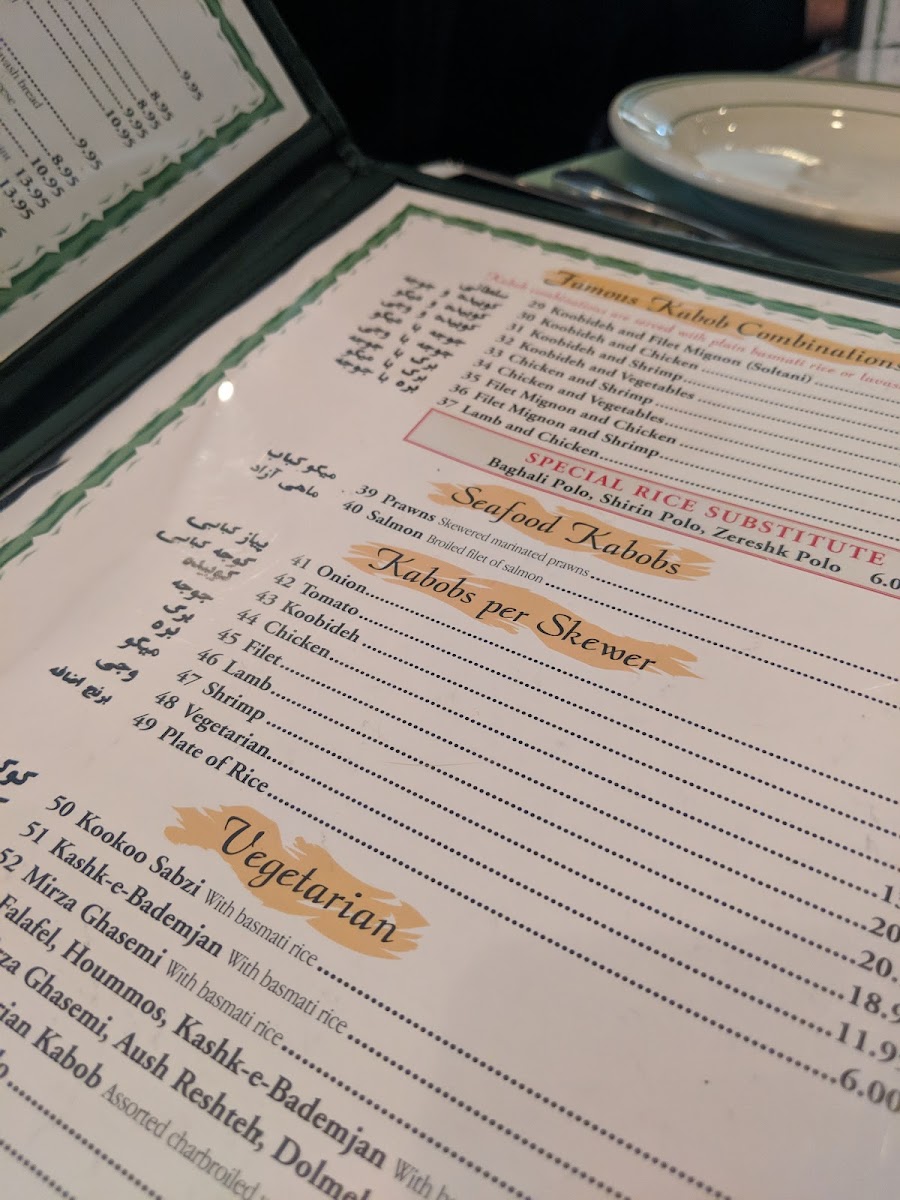 9.95
8.95
8.95
9.95
10.95
bread
9.95
8.95
10.95
13.95
13.95
Famous Kabob Combinations
Kabob combinations are served with plain basmati rice or lavas
29 Koobideh and Filet Mignon (Soltani)
30 Koobideh and Chicken
31 Koobideh and Shrimp
32 Koobideh and Vegetables
33 Chicken and Shrimp
34 Chicken and Vegetables
35 Filet Mignon and Chicken
36 Filet Mignon and Shrimp
37 Lamb and Chicken
SPECIAL RICE SUBSTITUTE
Baghali Polo, Shirin Polo, Zereshk Polo 6.0
Seafood Kabobs
39 Prawns Skewered marinated prawns میگو کباب
40 Salmon Broiled filet of salmon ماهی آزاد
Kabobs per Skewer
41 Onion پیاز کبابی
42 Tomato گوجه کبابی
43 Koobideh کوبیده
44 Chicken جوجه
45 Filet برگ
46 Lamb بره
47 Shrimp میگو
48 Vegetarian وجی
49 Plate of Rice برنج اضافه
20
20.
18.9
11.9
6.00
Vegetarian
50 Kookoo Sabzi With basmati rice
51 Kashk-e-Bademjan With basmati rice
52 Mirza Ghasemi With basmati rice
Falafel, Hoummos, Kashk-e-Bademjan With b
za Ghasemi, Aush Reshteh, Dolme
rian Kabob Assorted charbroiled